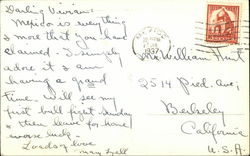 Darling Vivian:
Mexico is everything
& more that you have
claimed. I simply
adore it & am
having a grand
time. Will see my
first bull fight Sunday
& then leave for home,
worse luck.
Loads of love
Mary
1937
Mr. William Hunt
2514 Pied. Ave.;
Berkeley
California
U.S.A.